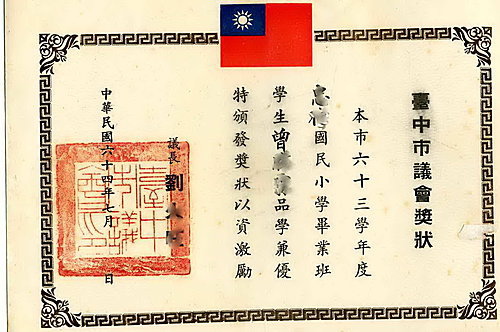 臺中市議會獎狀
本市六十三學年度
忠國民小學畢業班
學生曾品學兼優
特頒發獎狀以資激勵
議長 劉
中華民國六十四年七月 日
臺中
市議
會印